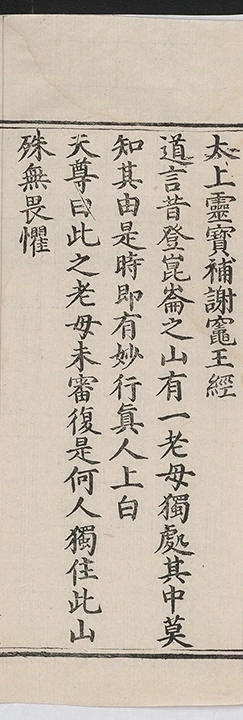 太上靈寶補謝竈王經
道言昔登崑崙之山有一老母獨處其中莫
知其由是時即有妙行眞人上白
天尊曰此之老母未審復是何人獨住此山
殊無畏懼